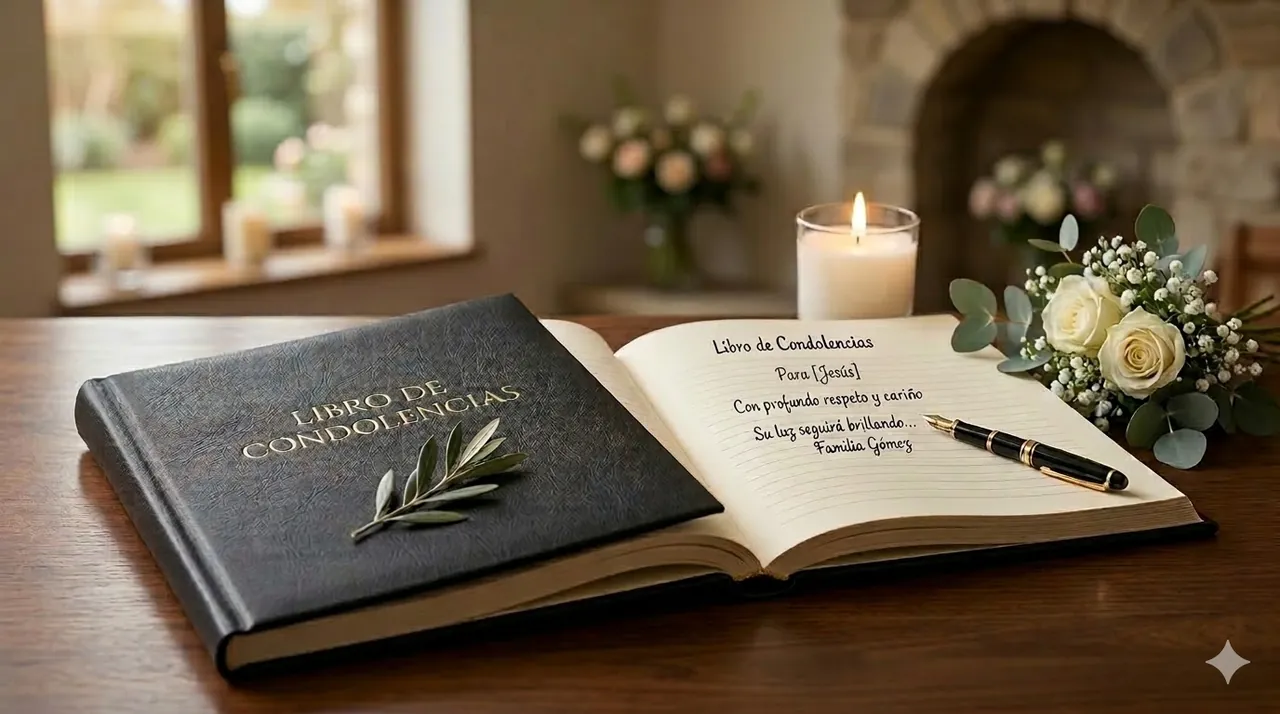 LIBRO DE
CONDOLENCIAS
Libro de Condolencias
Para [Jesús]
Con profundo respeto y cariño
Su luz seguirá brillando...
Familia Gómez